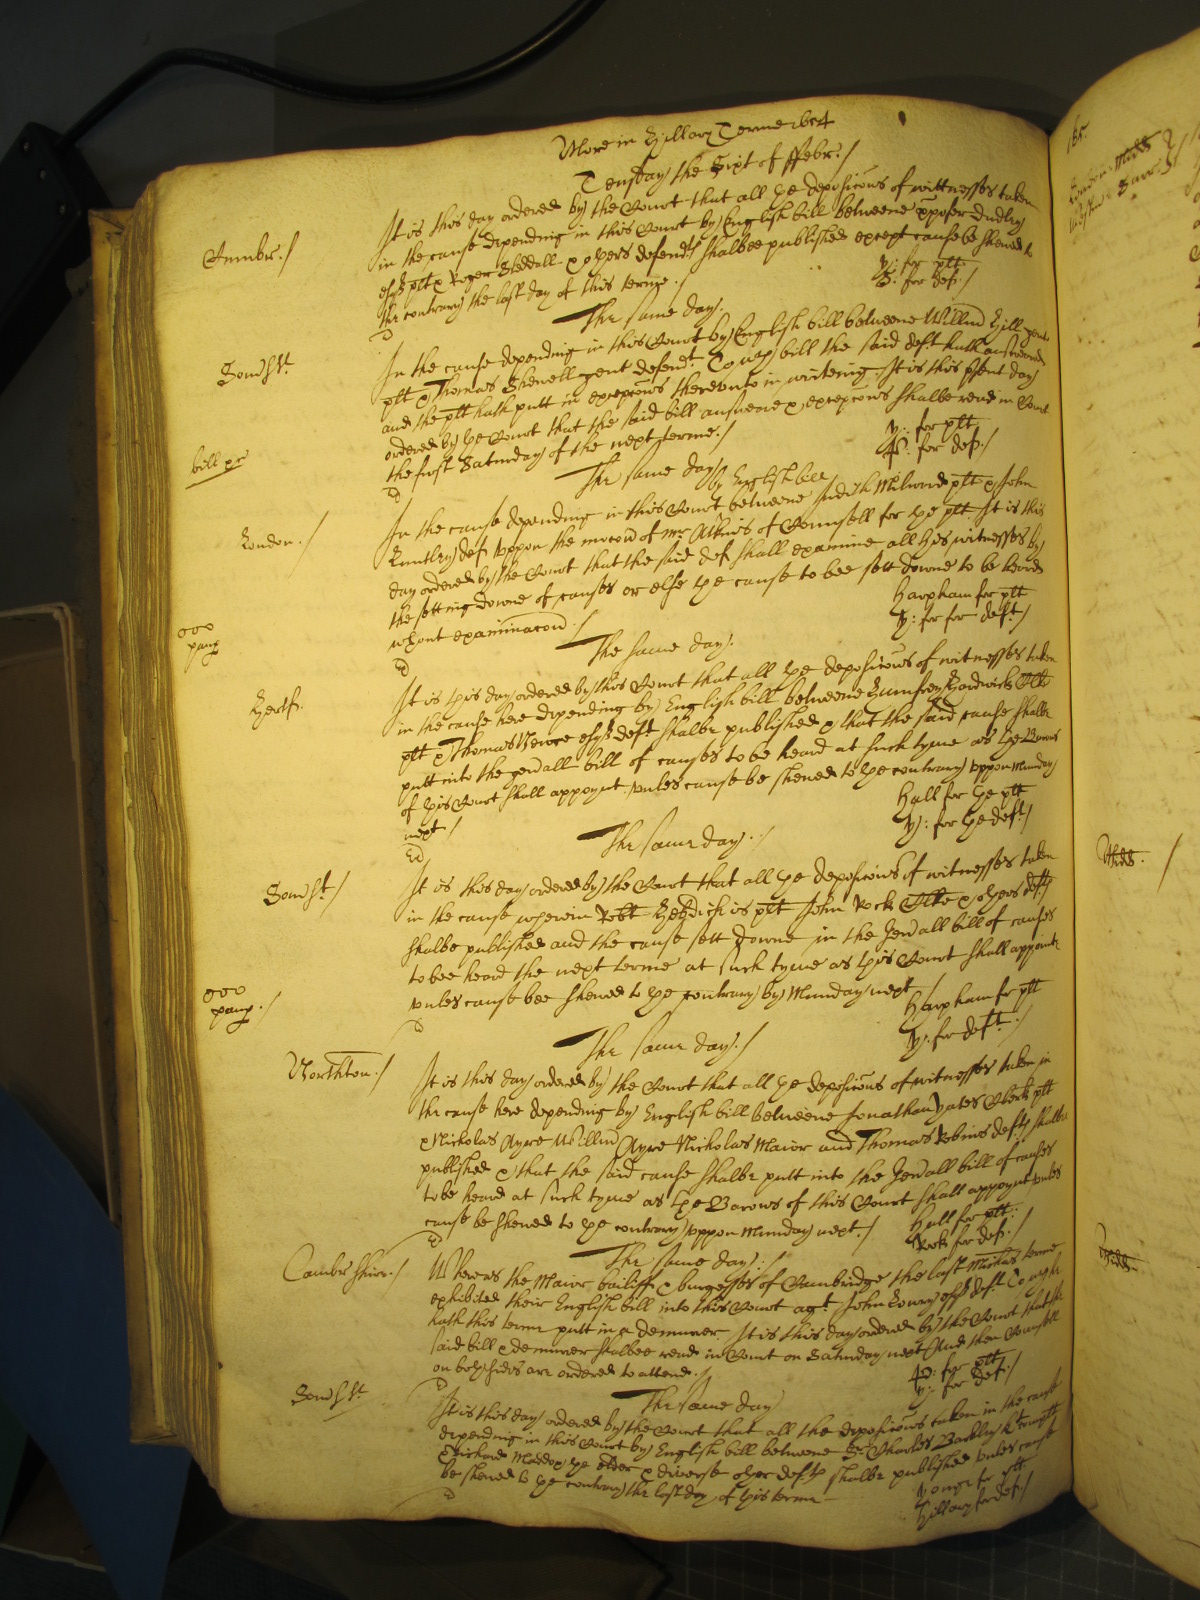 More in Hillary Terme 1604
Teusday the Sixt of ffebr:/
Cumber:/
It is this day ordered by the Court that all ye deposicons of wittnesses taken
in the cause depending in this Court by English bill betweene
esqr plt & Roger Sheddall & others defendts shalbee published except cause be shewed to
the contrary the last day of this terme:/
y: for plt
S: for def:/
The same day:
Somst.
In the cause depending in this Court by English bill betweene Willm Hill gent
plt & Thomas Shewell gent defendt To wch bill the said deft hath answered
and the plt hath putt in excepcons therevnto in writeing. It is this psent day
ordered by ye Court that the said bill answere & excepcons shalbe read in Court
the first Saturday of the next terme./
bill pr
y: for plt
for def:/
The same day
by English bill
London:/
In the cause depending in this Court betweene Judith Milward plt & John
def vppon the mocon of mr Atkins of Counsell for ye plt It is this
day ordered by the Court that the said def shall examine all his witnesses by
the setting downe of causes or else ye cause to bee sett downe to be heard
wthout examinacon:/
Harpham for plt
y: for for deft/
The same day:
Hertf.
It is this day ordered by this Court that all ye deposicons of witnesses taken
in the cause here depending by English bill betweene Humfrey Hardwick Cler
plt & Thomas Vence esqr deft shalbe published & that the said cause shalbe
putt into the genrall bill of causes to be heard at such tyme as ye Barons
of this Court shall appoynt vnles cause be shewed to ye contrary vppon Munday
next/
Hall for ye plt
y: for ye deft/
The same day:/
Somst:/
It is this day ordered by the Court that all ye deposicons of witnesses taken
in the cause wherein Robt is plt John Rock Cler & others defts
shalbe published and the cause sett downe in the Genrall bill of causes
to bee heard the next terme at such tyme as this Court shall appointe
vnles cause bee shewed to ye contrary by Munday next
Harpham for plt
y: for deft:/
The same day:/
Northton:/
It is this day ordered by the Court that all ye deposicons of witnesses taken in
the cause here depending by English bill betweene Jonathan Yates Clerk plt
& Nicholas Ayre Willm Ayre Nicholas Maior and Thomas Robins defts shalbe
published & that the said cause shalbe putt into the Genrall bill of causes
to be heard at such tyme as ye Barons of this Court shall appoynt vnles
cause be shewed to ye contrary vppon Munday next./
Hall for plt:
Rock for def:/
The same day:/
Cambr shire:/
Whereas the Maior bailiffs & burgesses of Cambridge the last Michas terme
exhibited their English bill into this Court agt John Lowry esqr deft To wch
hath this terme putt in a demurrer It is this day ordered by the Court that the
said bill & demurrer shalbee read in Court on Saturday next And then Counsell
on both sides are ordered to attend:/
for plt
y: for def:/
The same day
Somst
It is this day ordered by the Court that all the deposicons taken in the cause
depending in this Court by English bill betweene Sr Charles Barkley Kt complt
& Richard Maddox ye elder & diverse other defts shalbe published vnles cause
be shewed to ye contrary the last day of this terme
Yonge for plt
Hillary for def:/